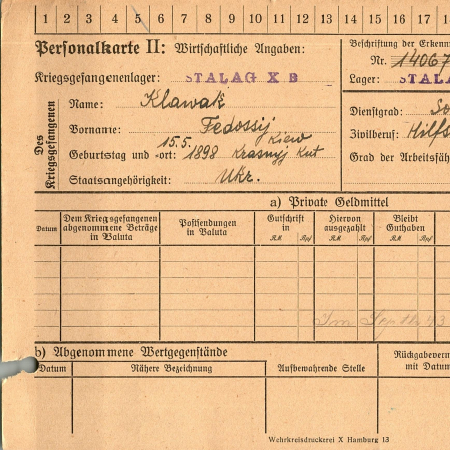 1 2 3 4 5 6 7 8 9 10 11 12 13 14 15 16 17 18
Personalkarte II: Wirtschaftliche Angaben:
Beschriftung der Erkenn
Nr. 14067
Kriegsgefangenenlager: STALAG X B
Lager: STALA
Des Kriegsgefangenen
Name: Klawak
Vorname: Fedossij
Geburtstag und -ort: 15.5. 1898 Kiew Krasnyj Kut
Staatsangehörigkeit: Ukr.
Dienstgrad: So
Zivilberuf: Hilfs
Grad der Arbeitsfäh
a) Private Geldmittel
Datum
Dem Kriegsgefangenen
abgenommene Beträge
in Valuta
Postsendungen
in Valuta
Gutschrift
in
RM Rpf
Hiervon
ausgezahlt
RM Rpf
Bleibt
Guthaben
RM Rpf
Im Sept. 43
b) Abgenommene Wertgegenstände
Datum
Nähere Bezeichnung
Aufbewahrende Stelle
Rückgabeverm
mit Datum
Wehrkreisdruckerei X Hamburg 13